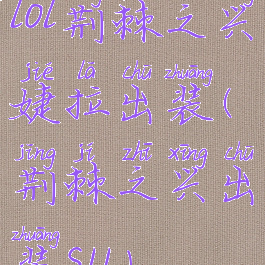 lol荆棘之兴
jié lā chū zhuāng
婕拉出装(
jīng jí zhī xīng chū
荆棘之兴出
zhuāng
装SU)